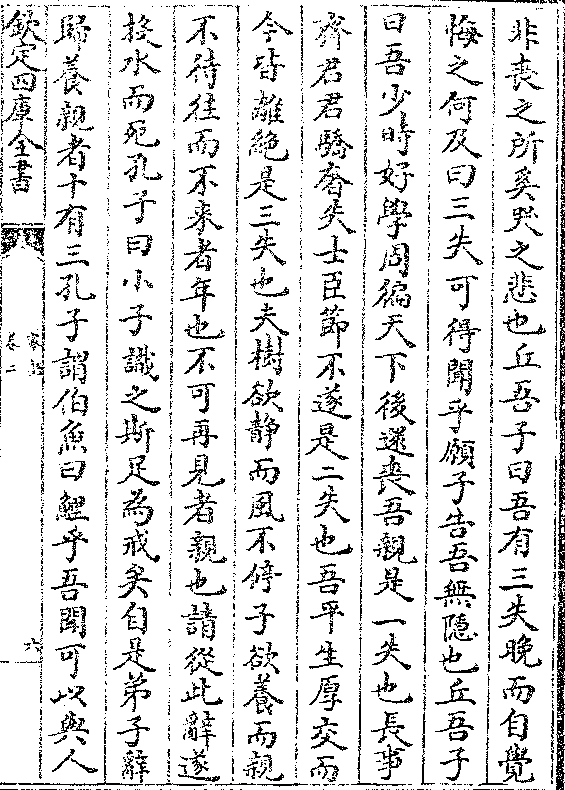 非喪之所奚哭之悲也丘吾子曰吾有三失晚而自覺
悔之何及曰三失可得聞乎願子告吾無隠也丘吾子
曰吾少時好學周徧天下後還喪吾親是一失也長事
齊君君驕奢失士臣節不遂是二失也吾平生厚交而
今皆離絶是三失也夫樹欲静而風不停子欲養而親
不待往而不来者年也不可再見者親也請從此辭遂
投水而死孔子曰小子識之斯足為戒矣自是弟子辭
歸養親者十有三孔子謂伯魚曰鯉乎吾聞可以與人
欽定四庫全書
家語
卷二
六